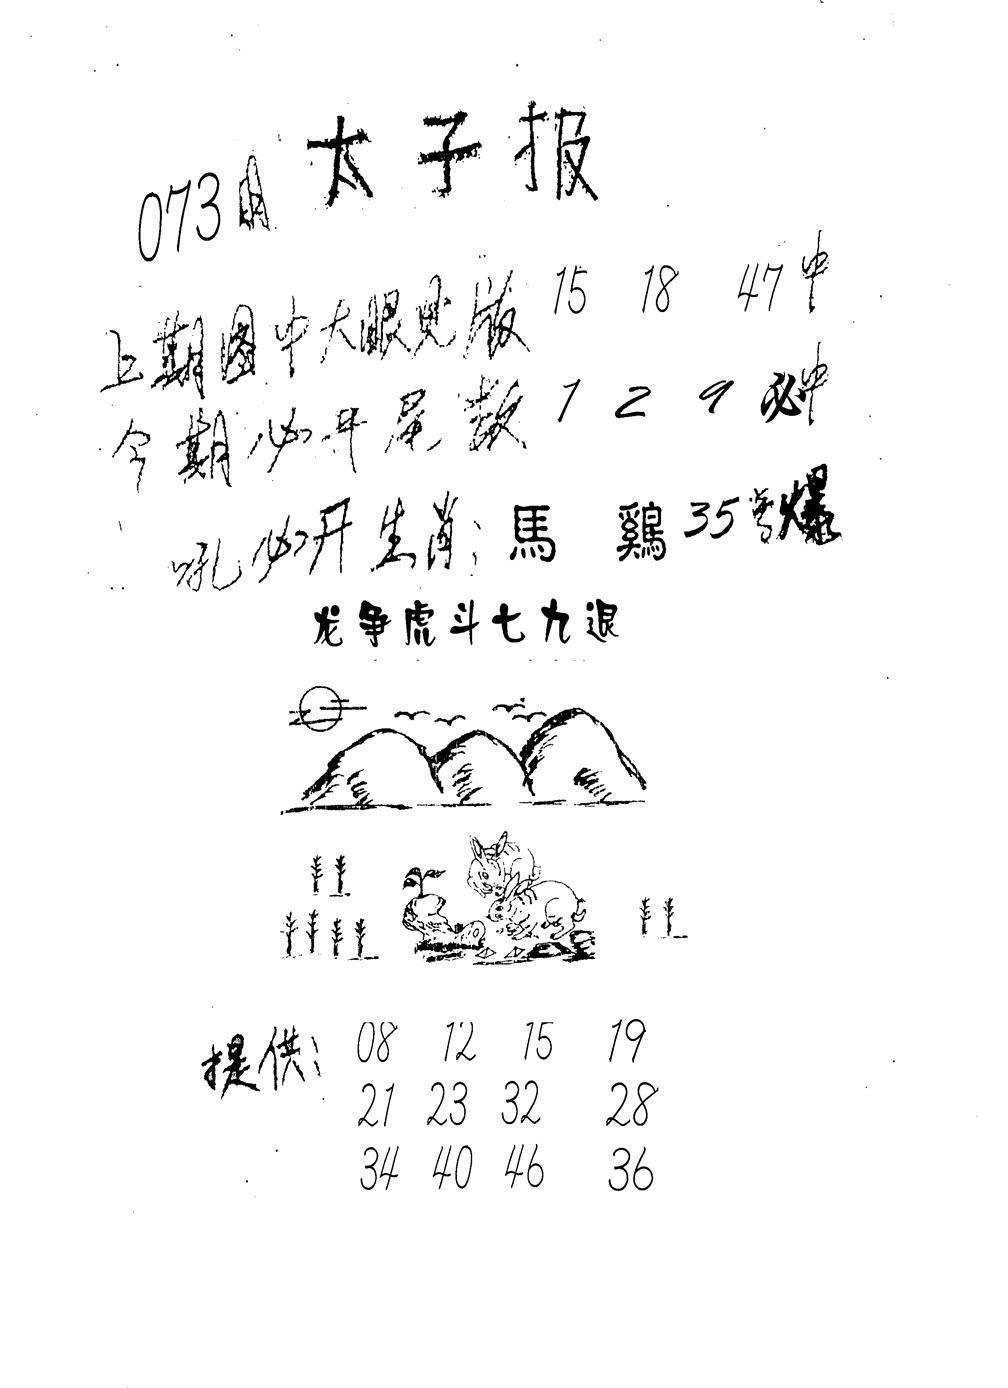 太子报
073期
上期图中大眼见版 15 18 47 中
今期必开尾数 1 2 9 必中
吼必开生肖: 馬 鷄 35 号爆
龙争虎斗七九退
提供: 08 12 15 19
21 23 32 28
34 40 46 36